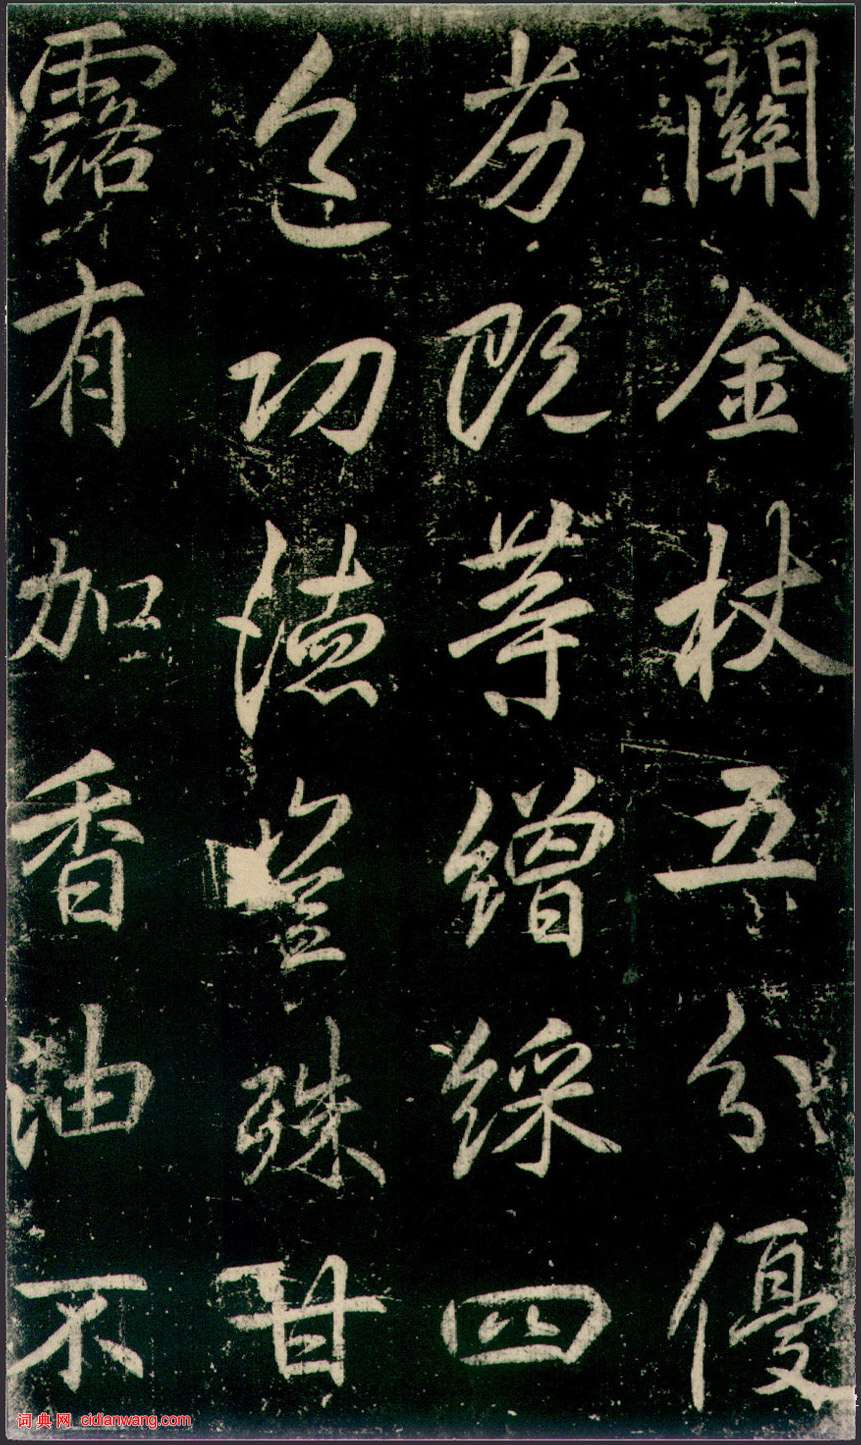 關金杖五分優
劣既等繒綵四
色功德豈殊甘
露有加香油不
词典网 cidianwang.com